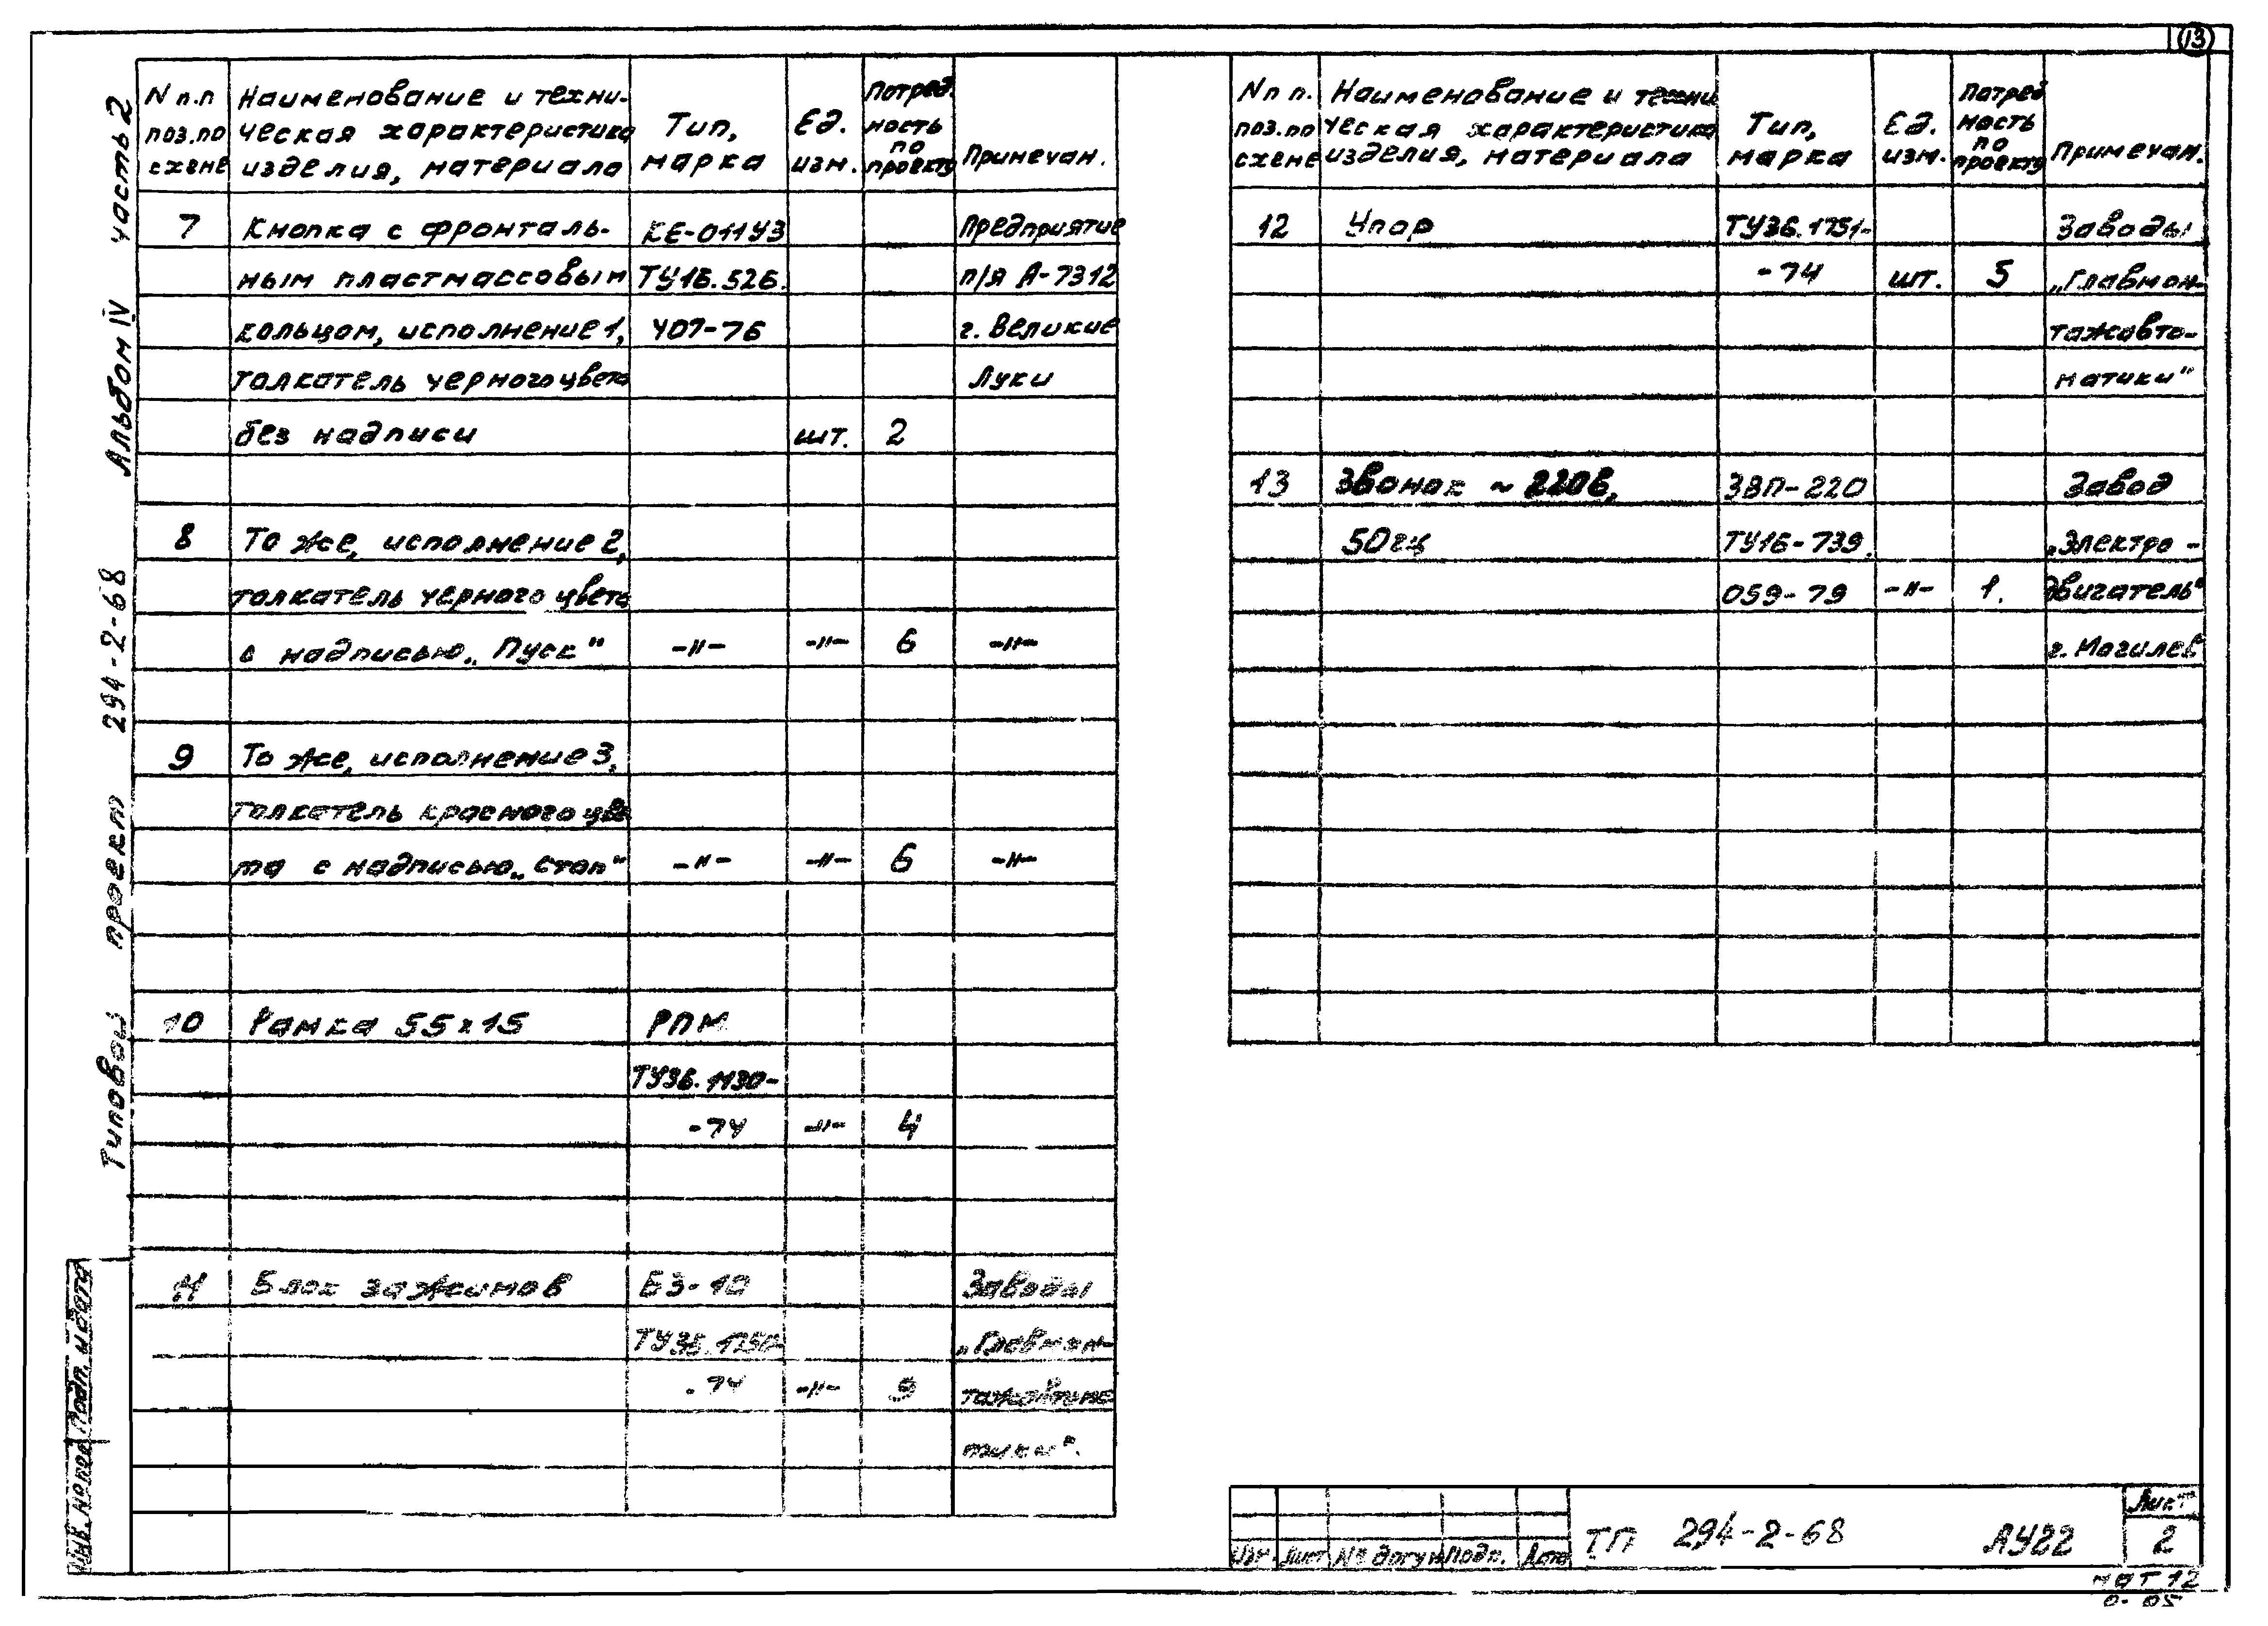 13
Типовой проект 294-2-68 Альбом IV часть 2
N п.п поз.по схеме
Наименование и техническая характеристика изделия, материала
Тип, марка
Ед. изм.
Потреб. ность по проекту
Примечан.
7 Кнопка с фронталь- КЕ-011У3 Предприятие
ным пластмассовым ТУ16.526. п/я А-7312
кольцом, исполнение 1, 407-76 г. Великие
толкатель черного цвета Луки
без надписи шт. 2
8 То же, исполнение 2,
толкатель черного цвета
с надписью „Пуск" -"- -"- 6 -"-
9 То же, исполнение 3,
толкатель красного цве
та с надписью „Стоп" -"- -"- 6 -"-
10 Рамка 55х15 РПМ
ТУ36.1130-
-74 -"- 4
11 Блок зажимов БЗ-10 Заводы
„Главмон-
-74 -"-
тики".
N п п. поз.по схеме
Наименование и техни ческая характеристика изделия, материала
Тип, марка
Ед. изм.
Потреб ность по проекту
Примечан.
12 Упор ТУ36.1751- Заводы
-74 шт. 5 „Главмон-
тажавто-
матики"
13 Звонок ~ 220в, ЗВП-220 Завод
50гц ТУ16-739. „Электро-
059-79 -"- 1. двигатель"
г. Могилев
Инв. № Подп. и дата
Изм. Лист № докум Подп. Дата
ТП 294-2-68 АУ22
Лист
2